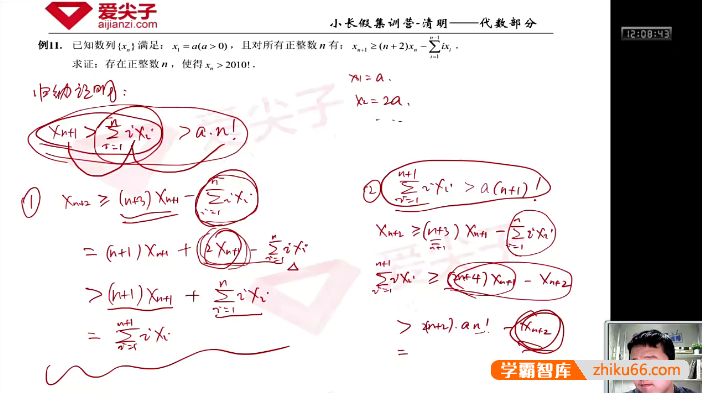 爱尖子
aijianzi.com
小长假集训营-清明——代数部分
12:08:43
例11. 已知数列{xₙ}满足：x₁=a(a>0)，且对所有正整数 n 有：xₙ₊₁≥(n+2)xₙ-∑ᵢ₌₁ⁿ⁻¹ixᵢ.
求证：存在正整数 n，使得 xₙ>2010!.
x₁=a.
x₂=2a.
归纳证明:
xₙ₊₁ > ∑ᵢ₌₁ⁿ i xᵢ > a·n!
① xₙ₊₂ ≥ (n+3) xₙ₊₁ - ∑ᵢ₌₁ⁿ i xᵢ
= (n+1) xₙ₊₁ + 2xₙ₊₁ - ∑ᵢ₌₁ⁿ i xᵢ
> (n+1) xₙ₊₁ + ∑ᵢ₌₁ⁿ i xᵢ
= ∑ᵢ₌₁ⁿ⁺¹ i xᵢ
② ∑ᵢ₌₁ⁿ⁺¹ i xᵢ > a(n+1)!
xₙ₊₂ ≥ (n+3) xₙ₊₁ - ∑ᵢ₌₁ⁿ i xᵢ
n+1
∑ᵢ₌₁ⁿ⁺¹ i xᵢ ≥ (2n+4) xₙ₊₁ - xₙ₊₂
> 2(n+2)·a n! - xₙ₊₂
=
爱尖子
学霸智库
zhiku66.com